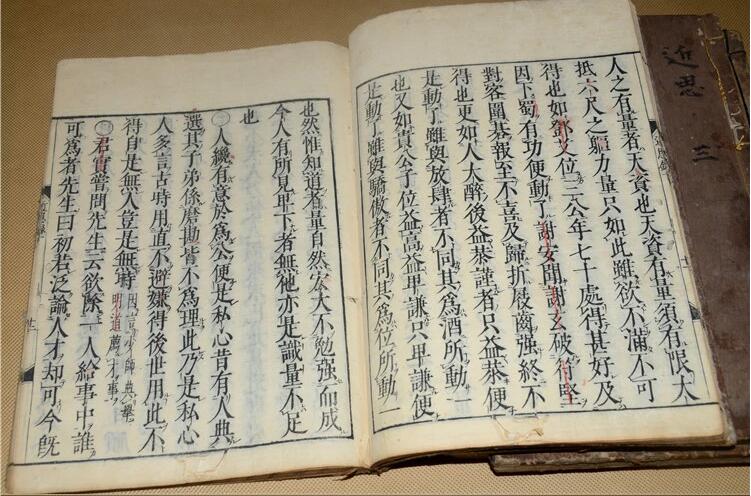 人之有量者天資也天資有量須有限大
抵六尺之軀力量只如此雖欲不滿不可
得也如鄧艾位三公年七十處得甚好及
因下蜀有功便動了謝安聞謝玄破符堅
對客圍碁報至不喜及歸折屐齒强終不
得也更如人大醉後益恭謹者只益恭便
是動了雖與放肆者不同其爲酒所動一
也又如貴公子位益高益卑謙只卑謙便
是動了雖與驕傲者不同其爲位所動一
也然惟知道者量自然宏大不勉强而成
今人有所見卑下者無他亦是識量不足
也
人纔有意於爲公便是私心昔有人典
選其子弟係磨勘皆不爲理此乃是私心
人多言古時用直不避嫌得後世用此不
得自是無人豈是無時因言少師典擧明道薦才事
君實嘗問先生云欲除一人給事中誰
可爲者先生曰初若泛論人才却可今旣
近思
三